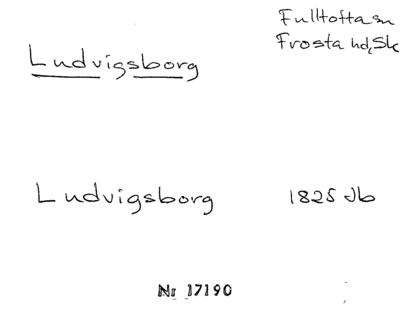 Fulltofta sn
Frosta hd, Sk
Ludvigsborg
Ludvigsborg 1825 Jb
Nr 17190